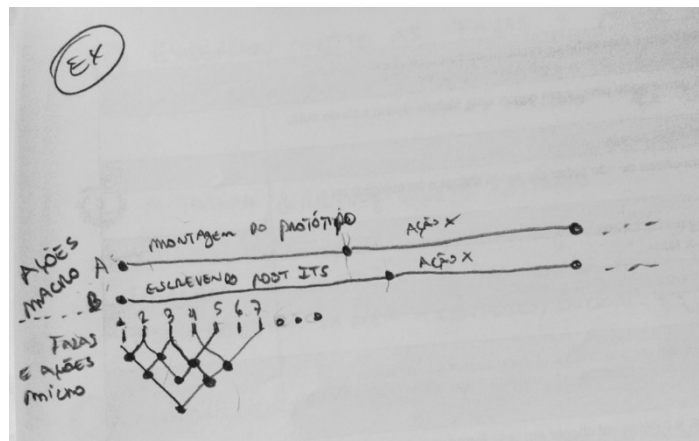 EX
AÇÕES MACRO
A MONTAGEM DO PROTÓTIPO AÇÃO X
B ESCREVENDO POST ITS AÇÃO X
1 2 3 4 5 6 7
FALAS E AÇÕES MICRO